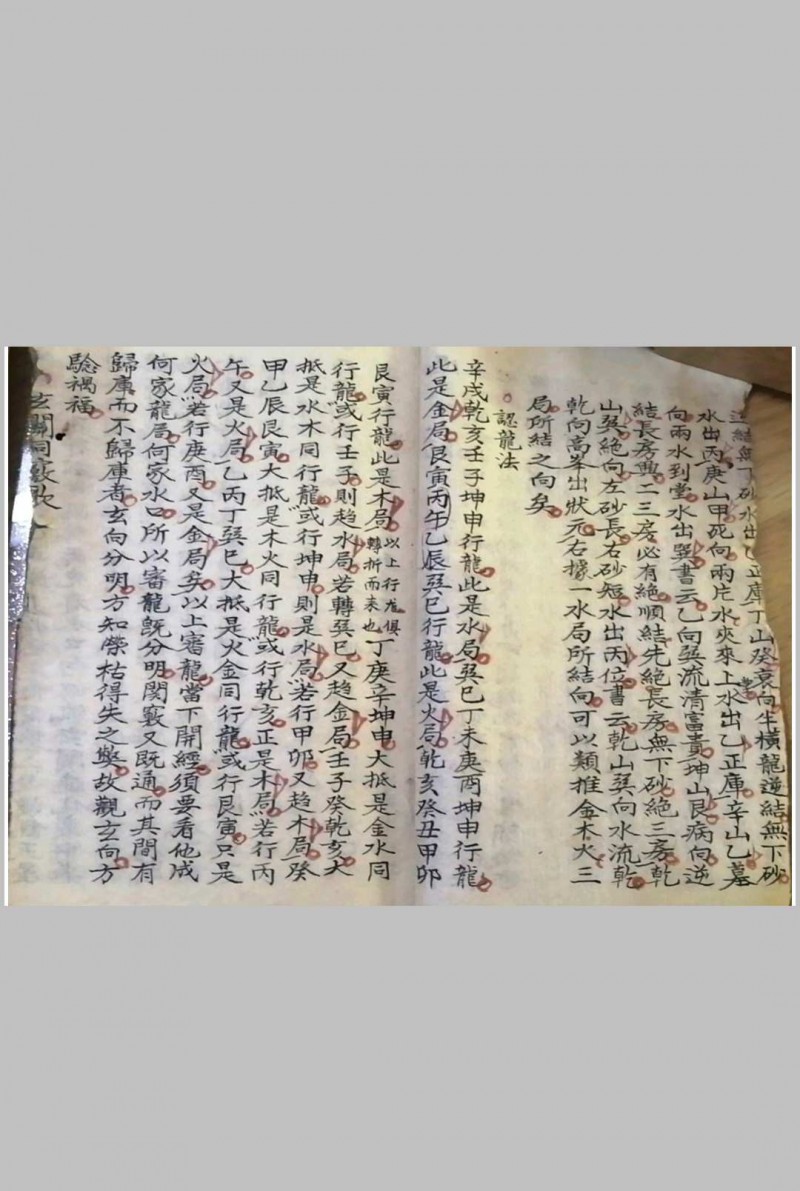 逆結無下砂水出乙正庫丁山癸衰向坐橫龍逆結無下砂
水出丙庚山甲死向兩片水夾來上水出乙正庫辛山乙墓
向兩水到堂水出巽書云乙向巽流清富貴坤山艮病向逆
結長房興二三房必有絕順結先絕長房無下砂絕三房乾
山巽絕向左砂長右砂短水出丙位書云乾山巽向水流乾
乾向高峯出狀元右據一水局所結向可以類推金木火三
局所結之向矣
認龍法
辛戌乾亥壬子坤申行龍此是水局巽巳丁未庚酉坤申行龍
此是金局艮寅丙午乙辰巽巳行龍此是火局乾亥癸丑甲卯
艮寅行龍此是木局以上行龙俱轉折而来也丁庚辛坤申大抵是金水同
行龍或行壬子則趋水局若轉巽巳又趋金局壬子癸乾亥大
抵是水木同行龍或行坤申則是水局若行甲卯又趋木局癸
甲乙辰艮寅大抵是木火同行龍或行乾亥正是木局若行丙
午又是火局乙丙丁巽巳大抵是火金同行龍或行艮寅只是
火局若行庚酉又是金局矣以上審龍當下開經須要看他成
何家龍局何家水口所以審龍旣分明関竅又旣通而其間有
歸庫而不歸庫者玄向分明方知榮枯得失之故觀玄向方
驗禍福
玄關同竅歌